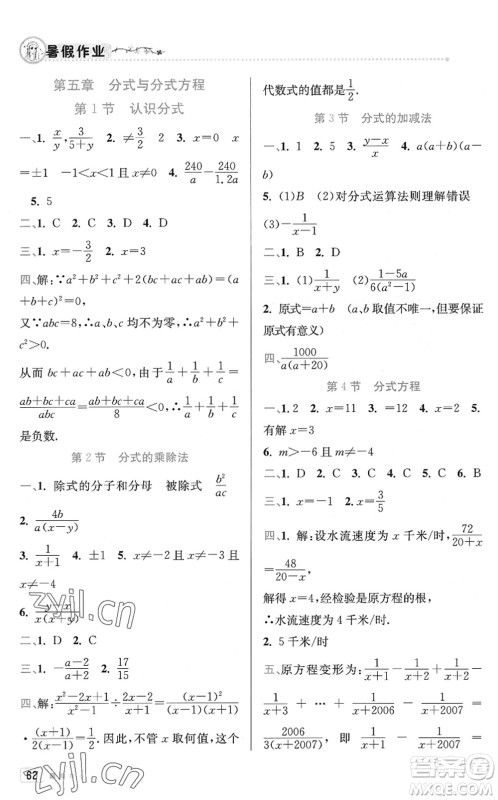 暑假作业
第五章 分式与分式方程
第1节 认识分式
一、1. x/y, 3/(5+y) 2. ≠-3/2 3. x
=±1 -1<x<1 4. 240/a 240/1.2a
5. 5
二、1. C 2. C 3. D 4. D
三、1. x=-3/2 2. x=3
四、解:∵a²+b²+c²+2(bc+ac+ab)=(a+b+c)²=0
又∵abc=8,∴a、b、c均不为零.
∴a²+b²+c²>0.
∴bc+ac+ab<0,从而得1/a+1/b+1/c=
(ab+bc+ac)/abc=(ab+bc+ac)/8<0,即1/a+1/b+1/c
是负数.
第2节 分式的乘除法
一、1. 除式的分子和分母 被除式 b²/ac
2. 4b/a(x-y)
3. 1/(x+1) 4. ±1 5. x≠-2 x≠-3
x≠-4
6. -(y+x)/x
二、1. D 2. A 3. D
三、1. -(a-2)/(a+2) 2. 17/15
四、解:(x²-2x+1)/(x²-1)÷(2x-2)/(x+1)=(x-1)²/(x-1)²
因此,不管x取何值,这个
62
代数式的值都是1/2.
第3节 分式的加减法
一、1. 2 2. 5 3. (y-x)/x 4. a(a+b)(a-b)
5. (1)B (2)对分式运算法则理解错误
(3)-1/(x-1)
二、1. B 2. D
三、1. (1)1/(x+y) (2)(1-5a)/6(a²-1)
2. 原式=a+b (a、b取值不唯一,但要保证
原式有意义)
四、1000/a(a+20)
第4节 分式方程
一、1. 2 2. x=11 3. x=2 4. x=2 5. 有解
6. m>-6且m≠-4
二、1. D 2. C 3. C 4. C 5. D
三、1. x=2 2. x=3/5
四、1. 解:设水流速度为x千米/时,72/(20+x)
=48/(20-x),
解得x=4,经检验是原方程的根.
∴水流速度为4千米/时
2. 5千米/时
五、原方程变形为:1/x-1/(x+1)+1/(x+1)-…
1/(x+3)+…+1/(x+2006)-1/(x+2007)=
2006/(3x+3),即1/x-1/(x+2007)=
zyjl.cn